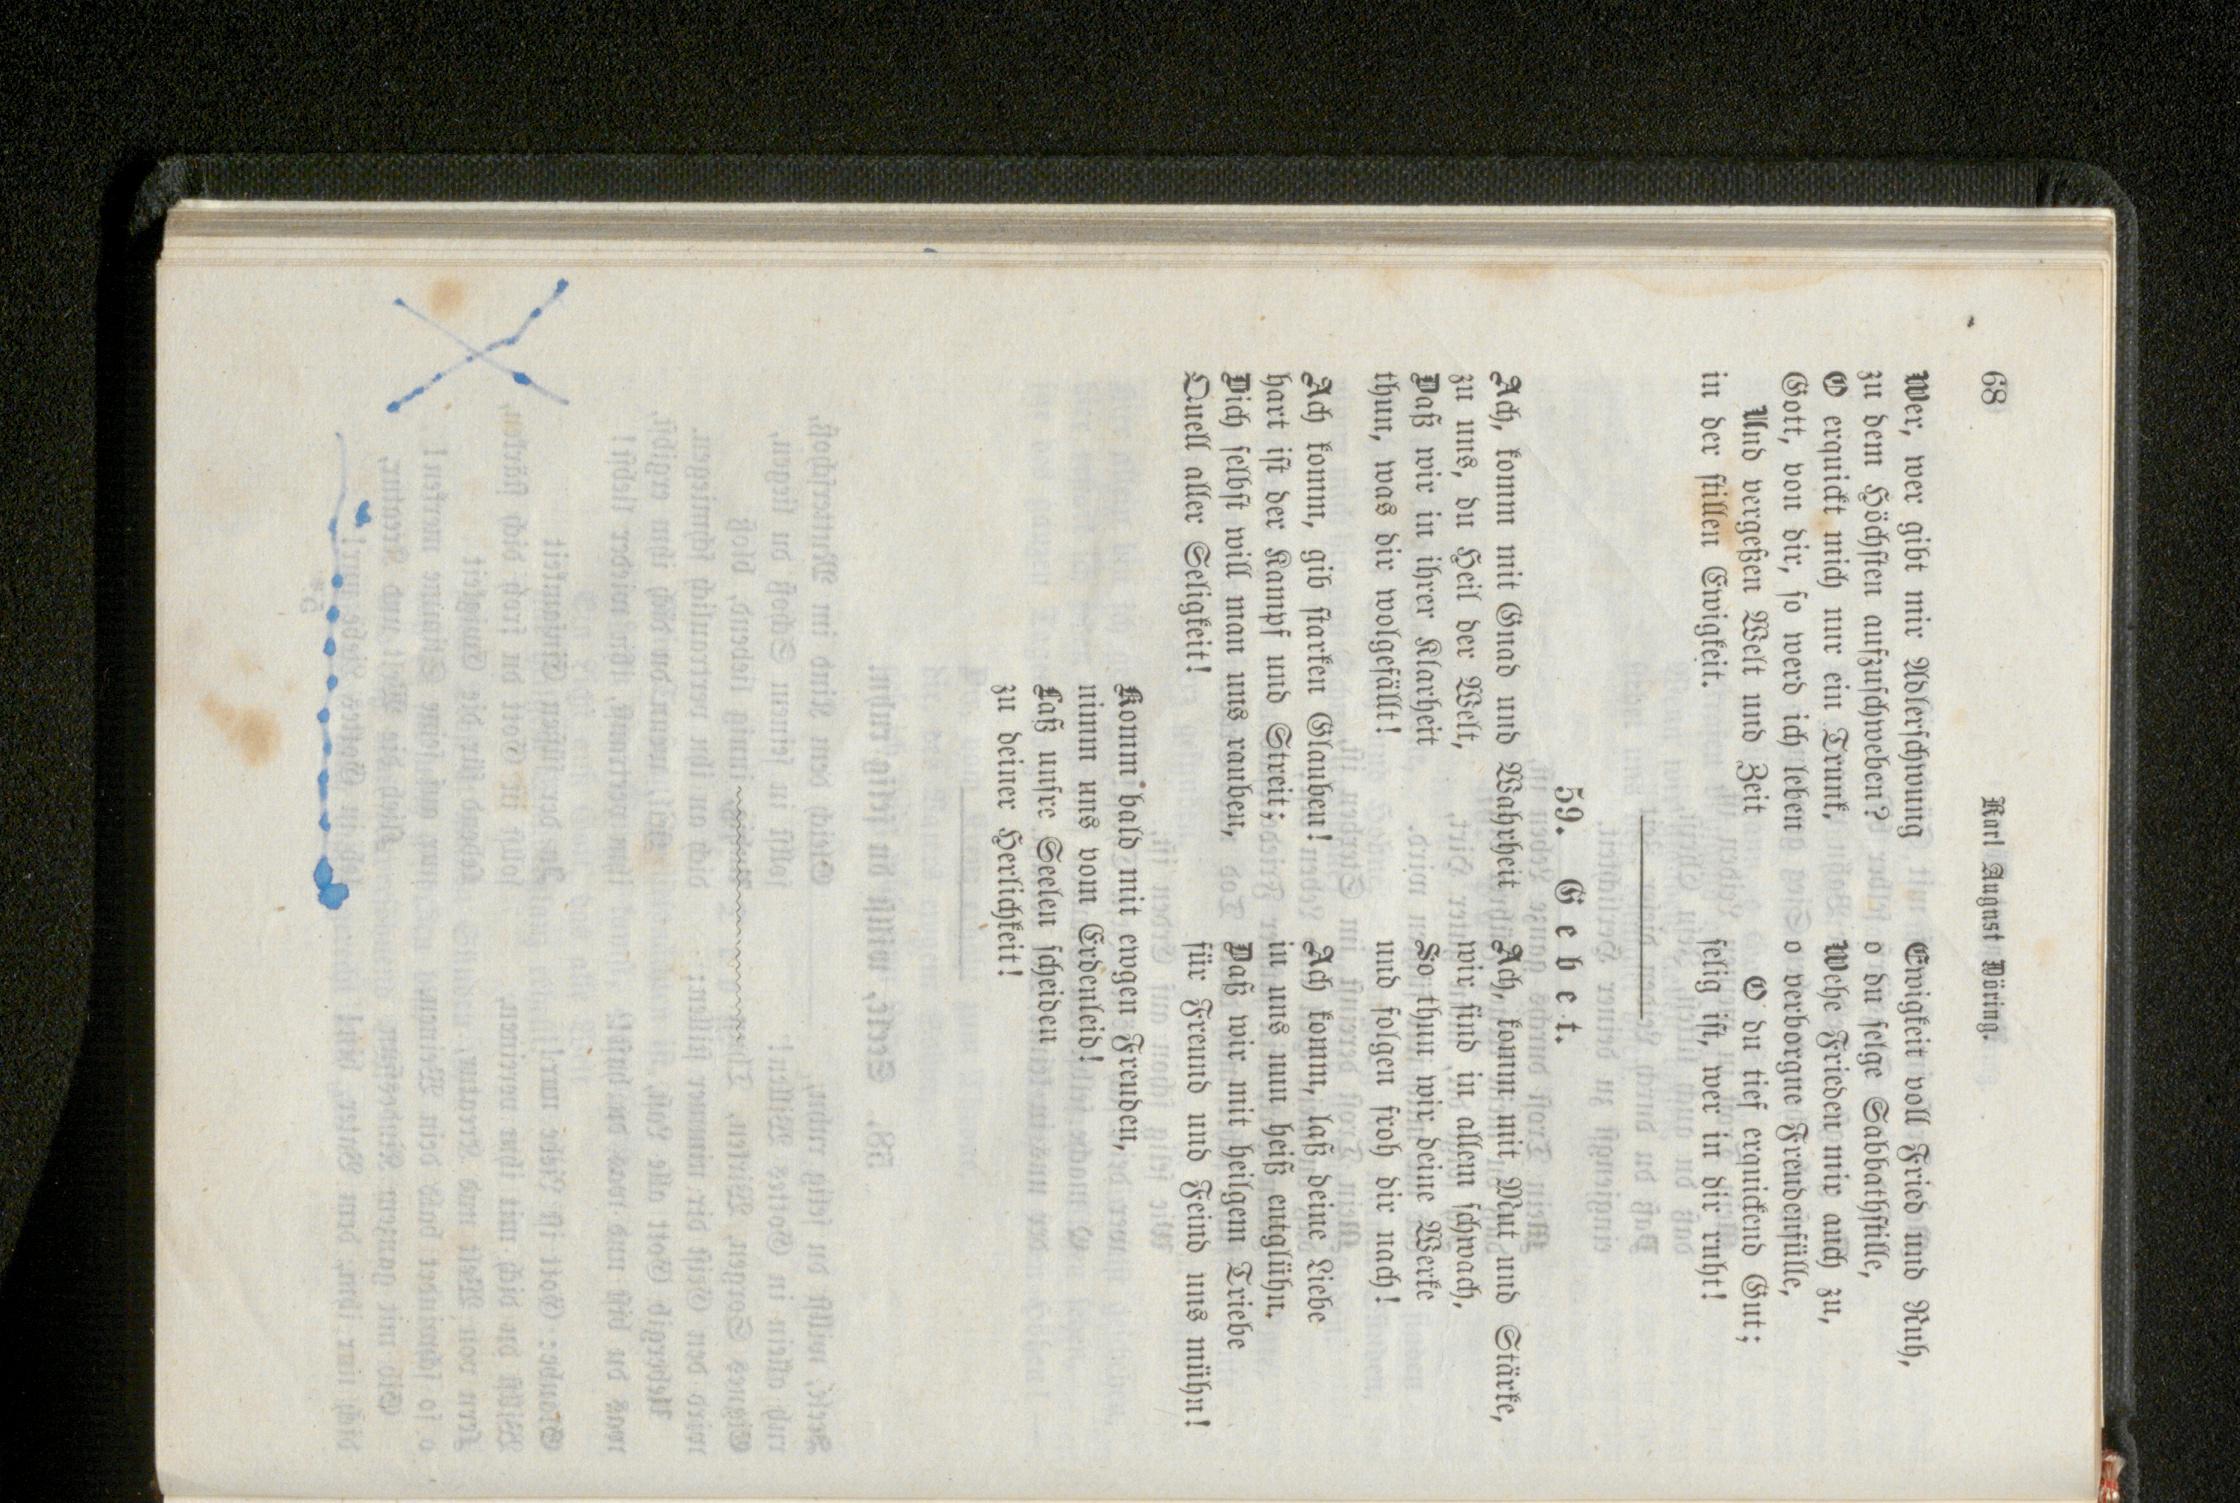 68
Karl August Döring.
Wer, wer gibt mir Adlerschwung
zu dem Höchsten aufzuschweben?
O erquickt mich nur ein Trunk,
Gott, von dir, so werd ich leben
Und vergeßen Welt und Zeit
in der stillen Ewigkeit.
Ewigkeit voll Fried und Ruh,
o du selge Sabbathstille,
Wehe Frieden mir auch zu,
o verborgne Freudenfülle,
O du tief erquickend Gut;
selig ist, wer in dir ruht!
59. Gebet.
Ach, komm mit Gnad und Wahrheit
zu uns, du Heil der Welt,
Daß wir in ihrer Klarheit
thun, was dir wolgefällt!
Ach komm, gib starken Glauben!
hart ist der Kampf und Streit;
Dich selbst will man uns rauben,
Quell aller Seligkeit!
Ach, komm mit Mut und Stärke,
wir sind in allem schwach,
So thun wir deine Werke
und folgen froh dir nach!
Ach komm, laß deine Liebe
in uns nun heiß entglühn.
Daß wir mit heilgem Triebe
für Freund und Feind uns mühn!
Komm bald mit ewgen Freuden,
nimm uns vom Erdenleid!
Laß unsre Seelen scheiden
zu deiner Herlichkeit!